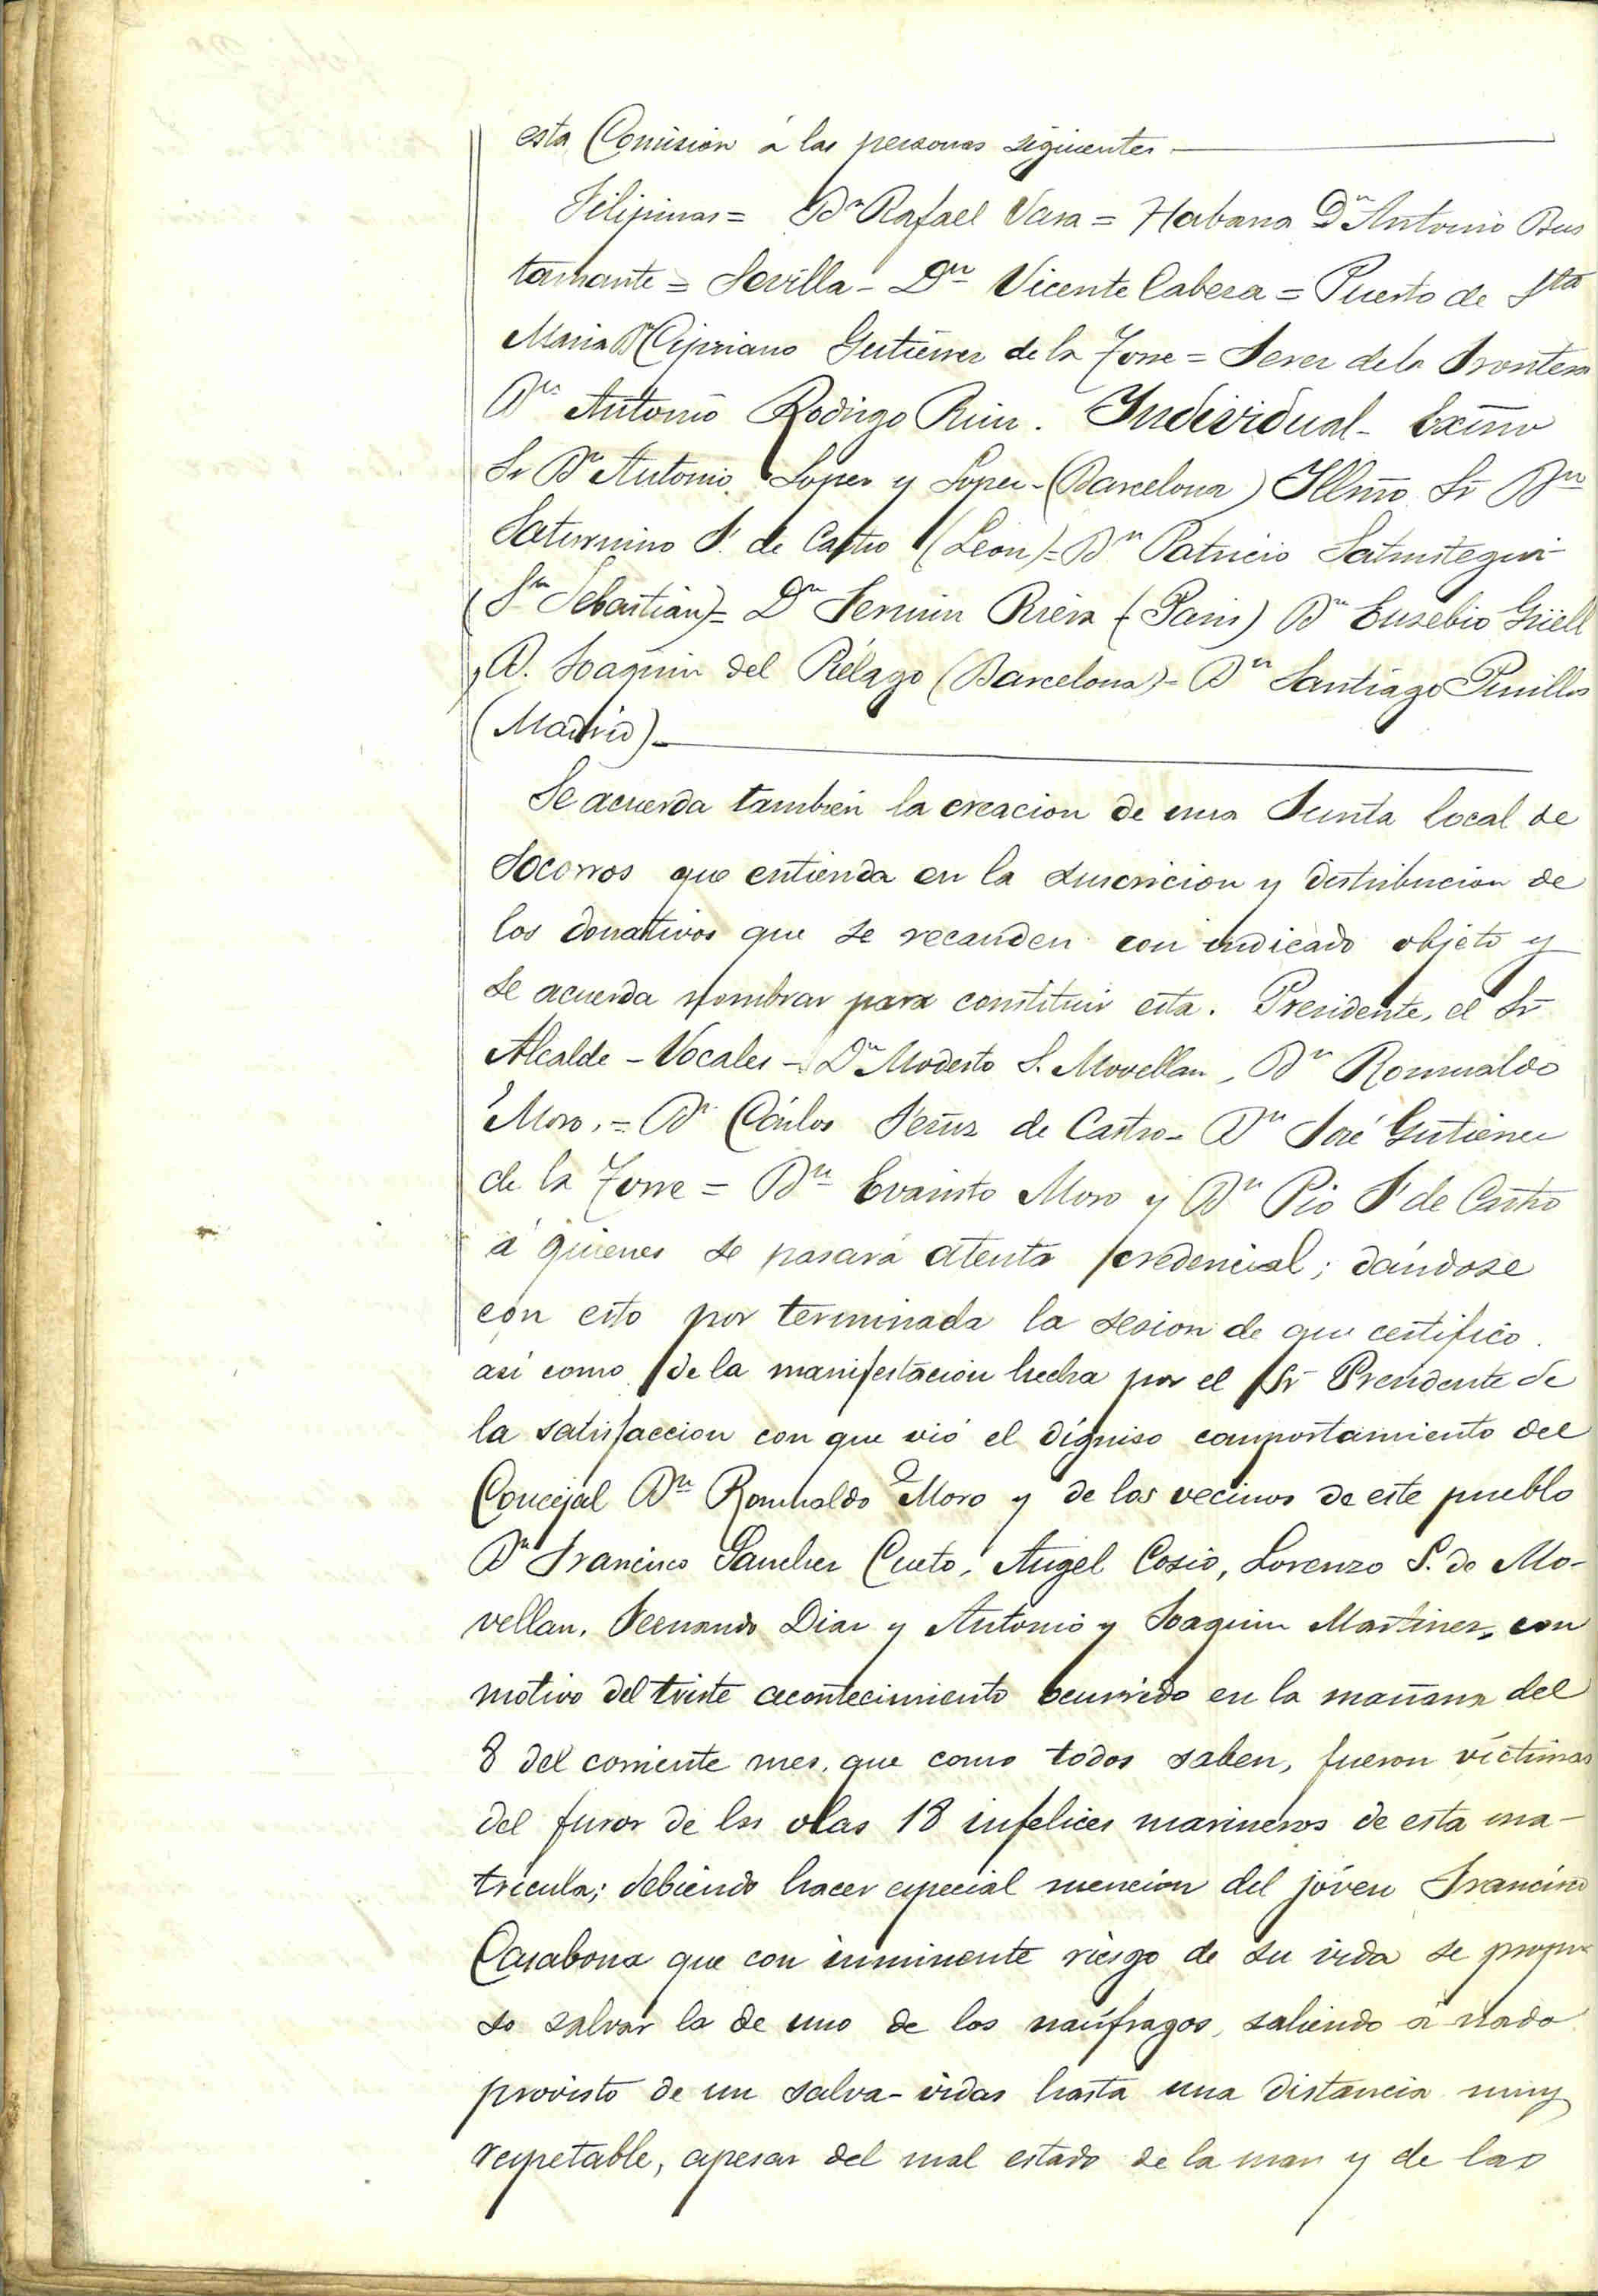 esta Comision á las personas siguientes
Filipinas = Dn Rafael Vara = Habana Dn Antonio Bus
tamante = Sevilla - Dn Vicente Cabeza = Puerto de Sta
Maria Dn Cipriano Gutierrez de la Torre = Jerez de la Frontera
Dn Antonio Rodrigo Ruiz. Individual - Exmo
Sr Dn Antonio Lopez y Lopez - (Barcelona) Illmo Sr Dn
Saturnino F. de Castro (Leon) = Dn Patricio Satrustegui -
(Sn Sebastian) = Dn Fermin Riera (Paris) Dn Eusebio Güell
y D. Joaquin del Piélago (Barcelona) = Dn Santiago Pinillos
(Madrid) -
Se acuerda tambien la creacion de una Junta local de
Socorros que entienda en la suscricion y distribucion de
los donativos que se recauden con indicado objeto y
se acuerda nombrar para constituir esta. Presidente, el Sr
Alcalde - Vocales - Dn Modesto S. Movellan, Dn Romualdo
Moro, = Dn Cárlos Fernz de Castro - Dn José Gutierrez
de la Torre = Dn Evaristo Moro y Dn Pio F. de Castro
á quienes se pasará atenta credencial; dándose
con esto por terminada la sesion de que certifico.
asi como de la manifestacion hecha por el Sr Presidente de
la satisfaccion con que vió el digniso comportamiento del
Concejal Dn Romualdo Moro y de los vecinos de este pueblo
Dn Francisco Sanchez Cueto, Angel Cosio, Lorenzo S. de Mo-
vellan, Fernando Diaz y Antonio y Joaquin Martinez, con
motivo del triste acontecimiento ocurrido en la mañana del
8 del corriente mes, que como todos saben, fueron víctimas
del furor de las olas 18 infelices marineros de esta ma-
trícula; debiendo hacer especial mencion del jóven Francisco
Casabona que con inminente riesgo de su vida se propu
so salvar la de uno de los naúfragos, saliendo á nado
provisto de un salva-vidas hasta una distancia muy
respetable, apesar del mal estado de la mar y de las